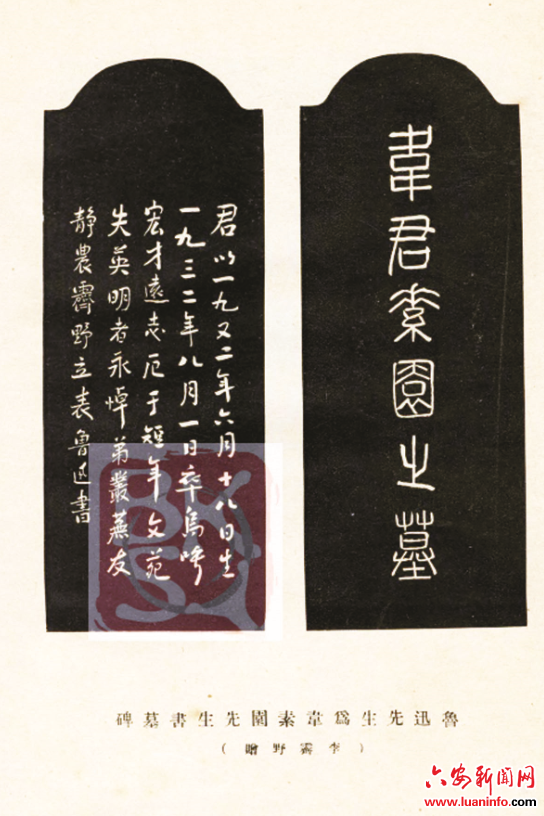 韋君素園之墓
君以一九又二年六月十八日生
一九三二年八月一日卒烏呼
宏才遠志厄于短年文苑
失英明者永悼弟叢蕪友
靜農霽野立表魯迅書
魯迅先生爲韋素園先生書墓碑
(李霽野贈)
六安新闻网
www.luaninfo.com